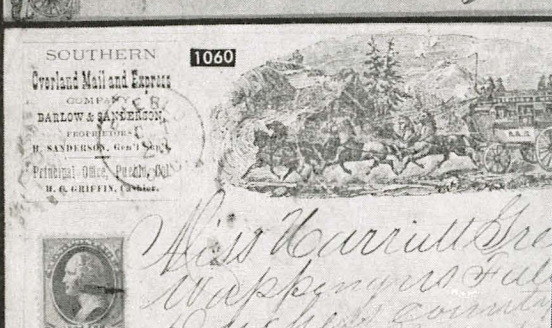 SOUTHERN
Overland Mail and Express
COMPANY,
BARLOW & SANDERSON,
PROPRIETORS.
H. SANDERSON, Gen'l Sup't,
Principal Office, Pueblo, Col.
H. O. GRIFFIN, Cashier.
1060
Miss Harriett
Wappingers Fall
County